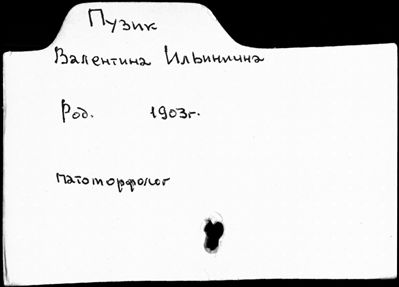 Пузик
Валентина Ильинична
Род. 1903г.
патоморфолог